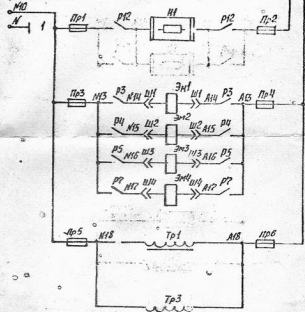 N10
N 1
Пр1 Р12 Н1 Р12 Пр2
Пр3 N13 Р3 N14 Ш1 Эм1 Ш1 А14 Р3 А13 Пр4
Р4 N15 Ш2 Эм2 Ш2 А15 Р4
Р5 N16 Ш3 Эм3 Ш3 А16 Р5
Р7 N17 Ш4 Эм4 Ш4 А17 Р7
Пр5 N18 Тр1 А18 Пр6
Тр3